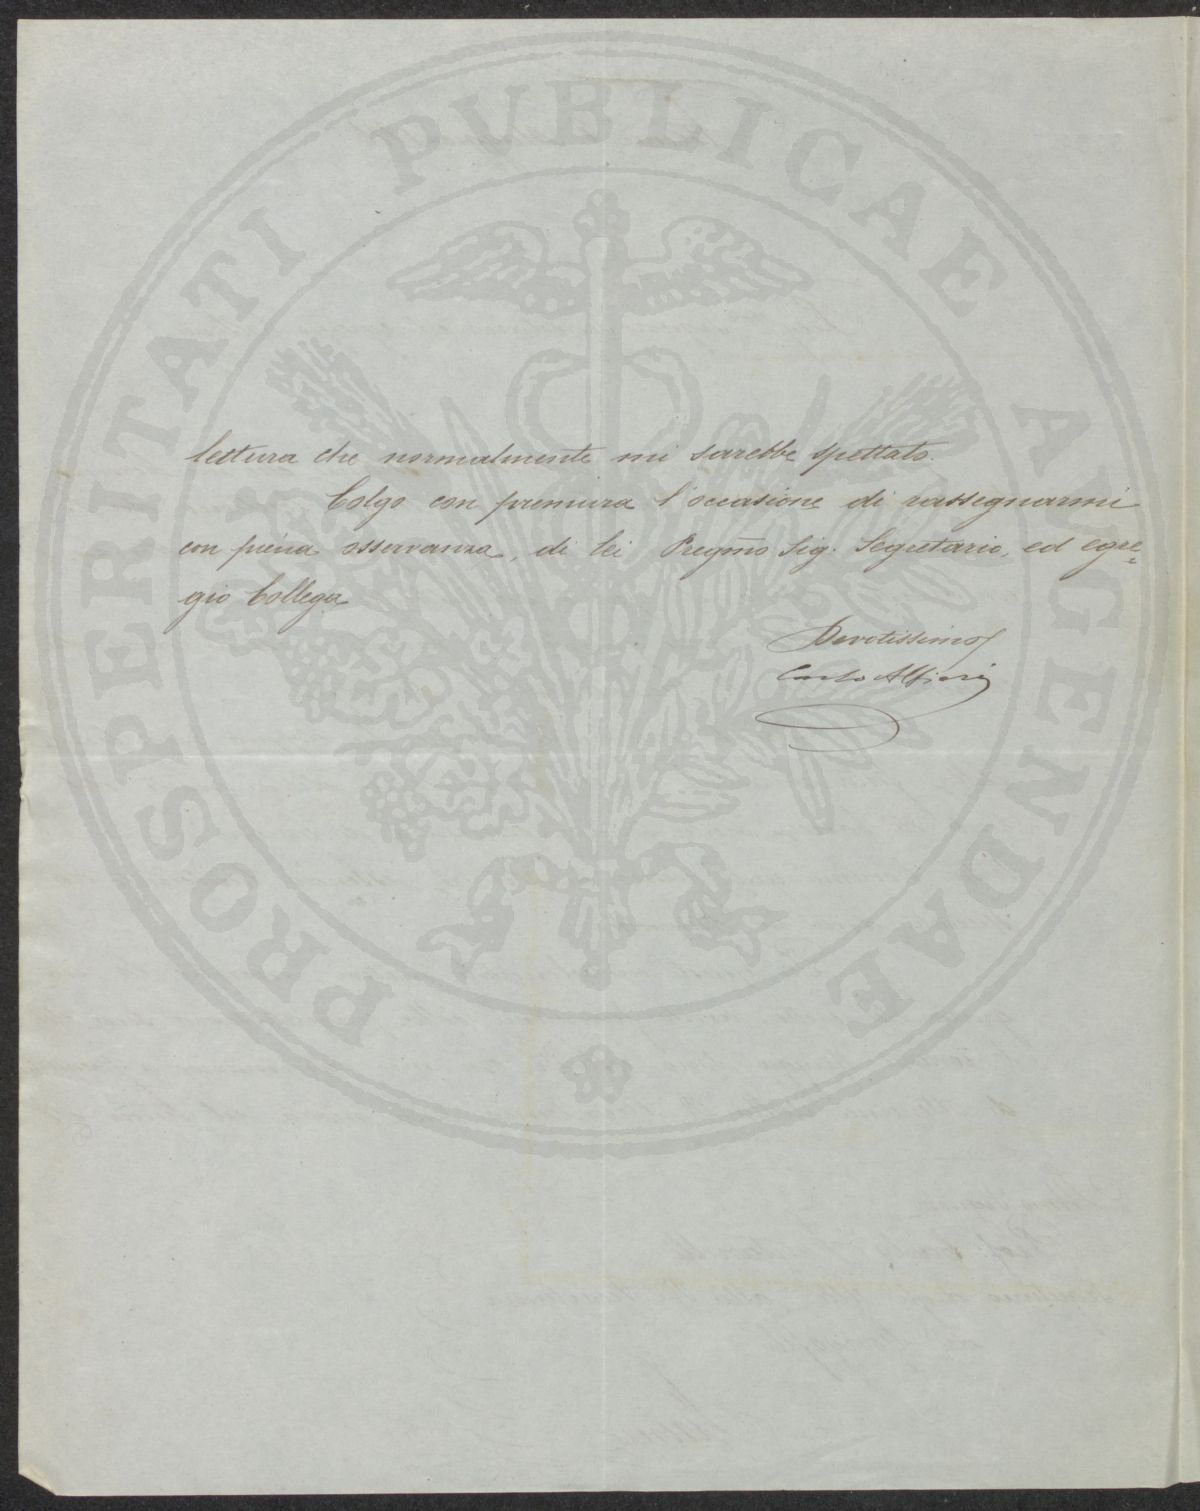 PROSPERITATI PUBLICAE AVGENDAE
lettura che normalmente mi sarebbe spettato.
Colgo con premura l'occasione di rassegnarmi
con piena osservanza, di lei Pregmo Sig. Segretario, ed egre=
gio Collega
Devotissimo
Carlo Alfieri